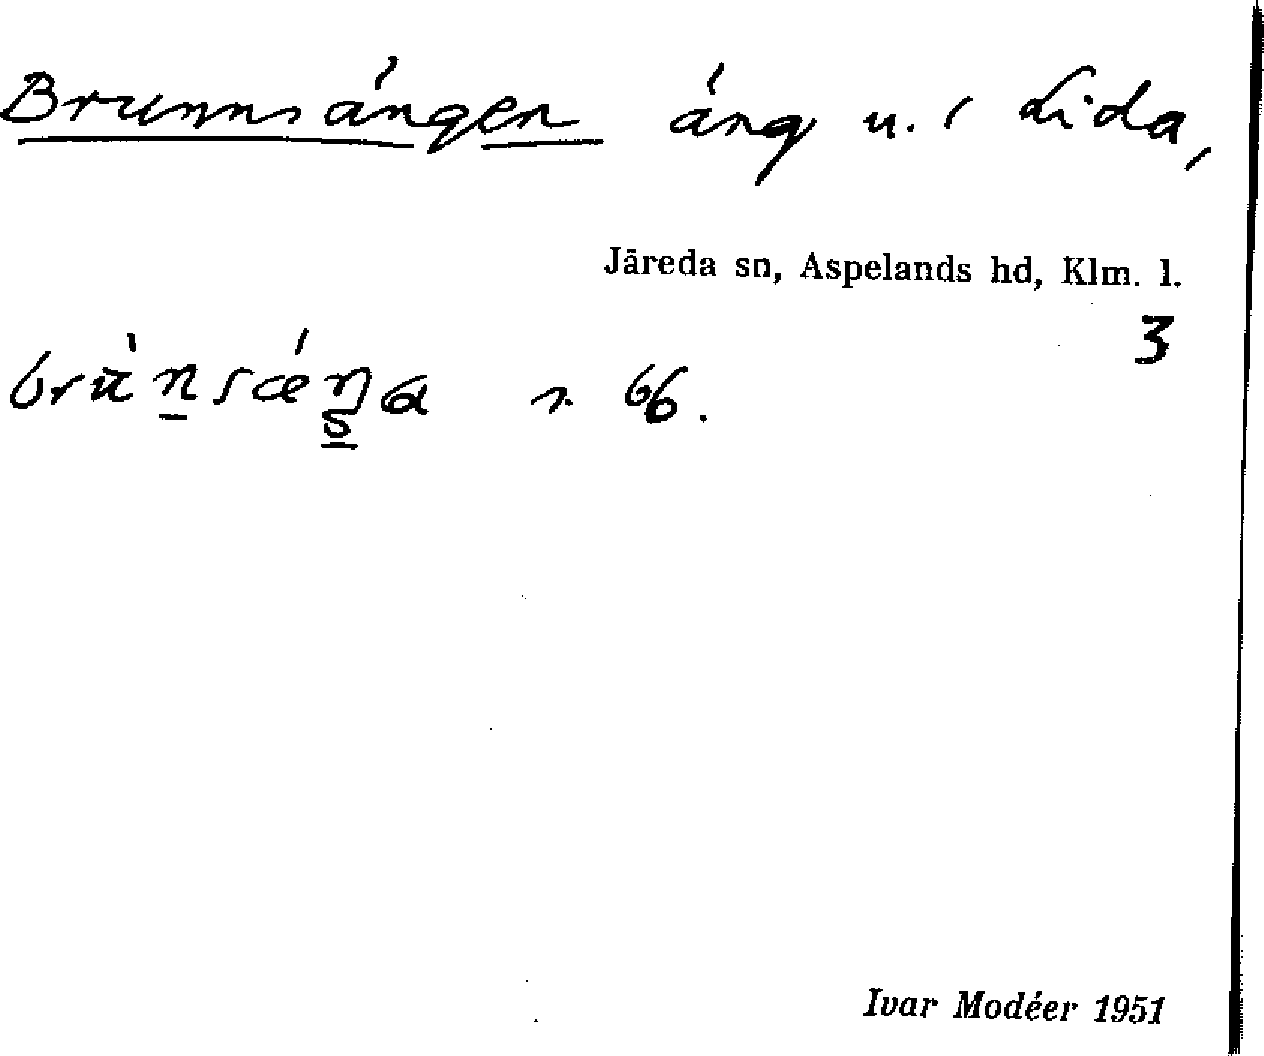 Brunnsängen äng u. Lida,
Järeda sn, Aspelands hd, Klm. l.
3
66.
Ivar Modéer 1951